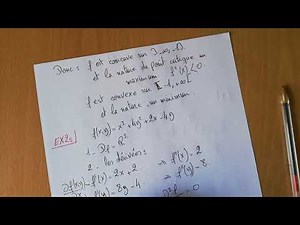 Donc : f est concave sur ]-∞, -1[
et la nature de point critique un
maximum f"(x) < 0.
f est convexe sur ]-1, +∞[
et la nature un minimum
EX2 : f(x,y) = x² + 4y² + 2x - 4y
1. Df = R²
2. les dérivées :
f'(x) = 2x + 2 ⇒ f"(x) = 2
f'(y) = 8y - 4 ⇒ f"(y) = 8
= 0